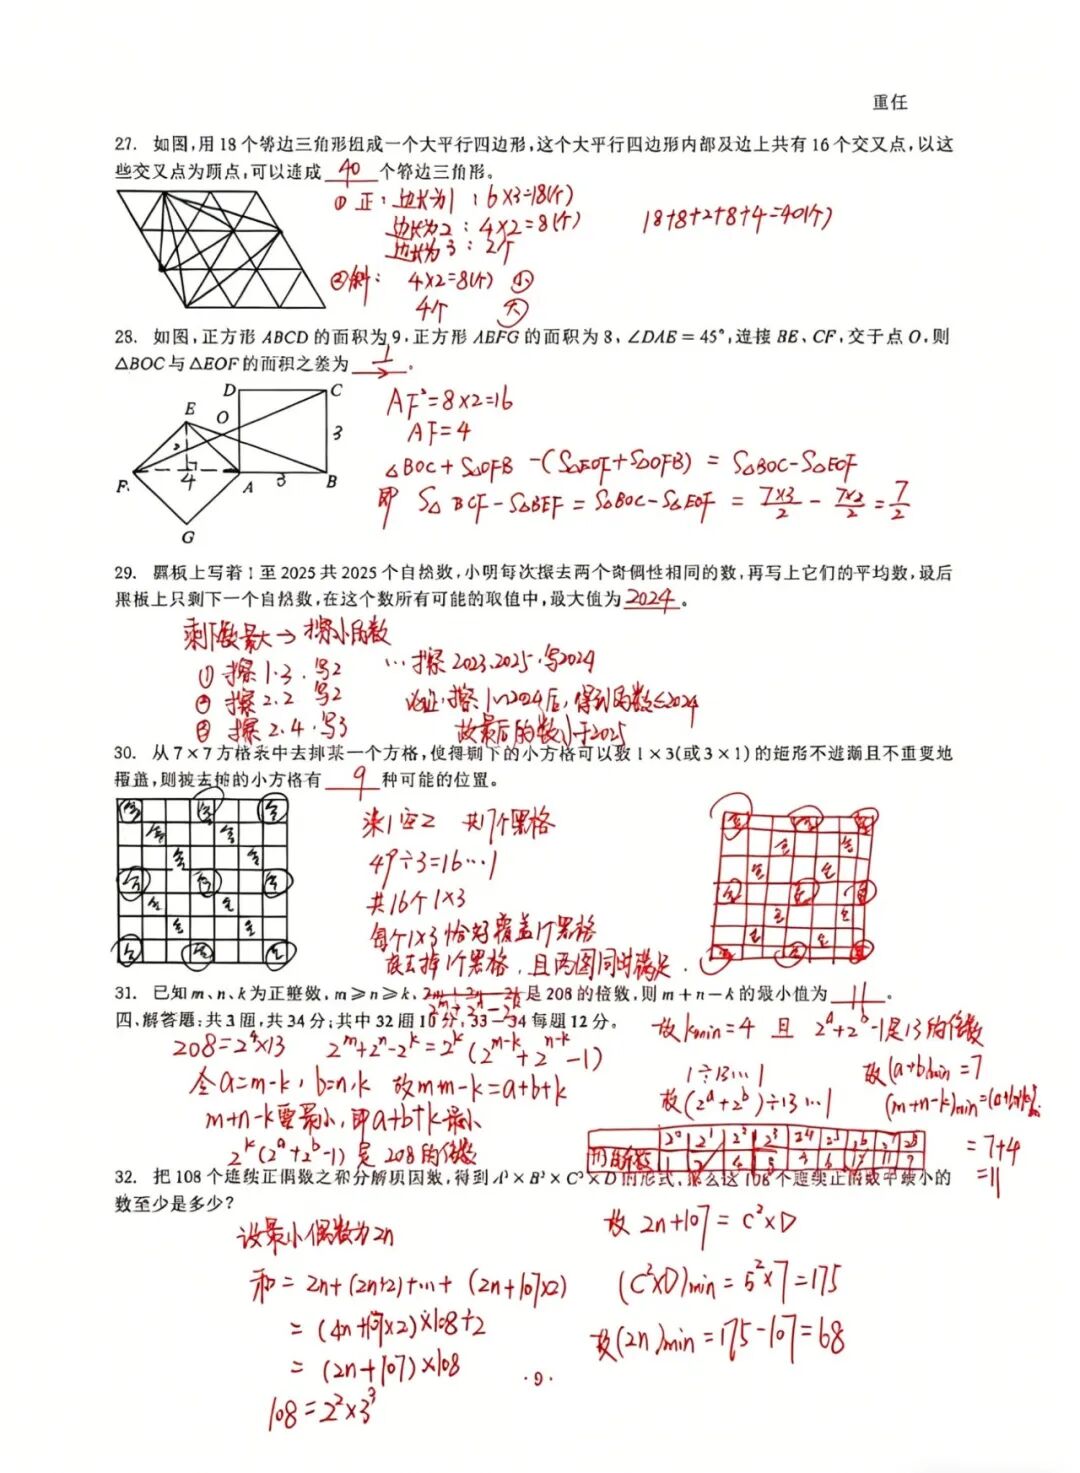 重任
27. 如图,用18个等边三角形组成一个大平行四边形,这个大平行四边形内部及边上共有16个交叉点,以这
些交叉点为顶点,可以连成 40 个等边三角形。
① 正: 边长为1 : 6×3=18(个)
边长为2 : 4×2=8(个)
边长为3 : 2个
18+8+2+8+4=40(个)
②斜: 4×2=8(个) 小
4个 大
28. 如图,正方形ABCD的面积为9,正方形ABFG的面积为8,∠DAE=45°,连接BE、CF,交于点O,则
△BOC与△EOF的面积之差为 。
D C
E O
3
2
F 4 A 3 B
G
AF²=8×2=16
AF=4
△BOC+S△OFB-(S△EOF+S△OFB)=S△BOC-S△EOF
即 S△BCF-S△BEF=S△BOC-S△EOF=7×3/2-7×2/2=7/2
29. 黑板上写着1至2025共2025个自然数,小明每次擦去两个奇偶性相同的数,再写上它们的平均数,最后
黑板上只剩下一个自然数,在这个数所有可能的取值中,最大值为 2024 。
剩下数最大→擦小的数
① 擦1.3.写2 …擦2023.2025.写2024
② 擦2.2 写2
③ 擦2.4.写3
论证:擦1~2024后,得到的数≤2024
故最后的数小于2025
30. 从7×7方格表中去掉某一个方格,使得剩下的小方格可以被1×3(或3×1)的矩形不遗漏且不重复地
覆盖,则被去掉的小方格有 9 种可能的位置。
染1空2 共17个黑格
49÷3=16…1
共16个1×3
每个1×3恰好覆盖1个黑格
故去掉1个黑格,且两图同时满足.
31. 已知m、n、k为正整数,m≥n≥k, 2m+2n-2k 是208的倍数,则m+n-k的最小值为 11 。
四、解答题:共3题,共34分;其中32题10分,33—34每题12分。
208=2⁴×13 2^m+2^n-2^k=2^k(2^(m-k)+2^(n-k)-1)
令a=m-k,b=n,k 故m+n-k=a+b+k
m+n-k要最小,即a+b+k最小
2^k(2^a+2^b-1)是208的倍数
故kmin=4 且 2^a+2^b-1是13的倍数
1÷13…1
故(2^a+2^b)÷13…1
故(a+b)min=7
=7+4
=11
32. 把108个连续正偶数之和分解质因数,得到A³×B³×C²×D的形式,那么这108个连续正偶数中最小的
数至少是多少?
设最小偶数为2n
和=2n+(2n+2)+…+(2n+107×2)
=(4n+107×2)×108÷2
=(2n+107)×108
108=2²×3³
故 2n+107=C²×D
(C²×D)min=5²×7=175
故(2n)min=175-107=68
·9·